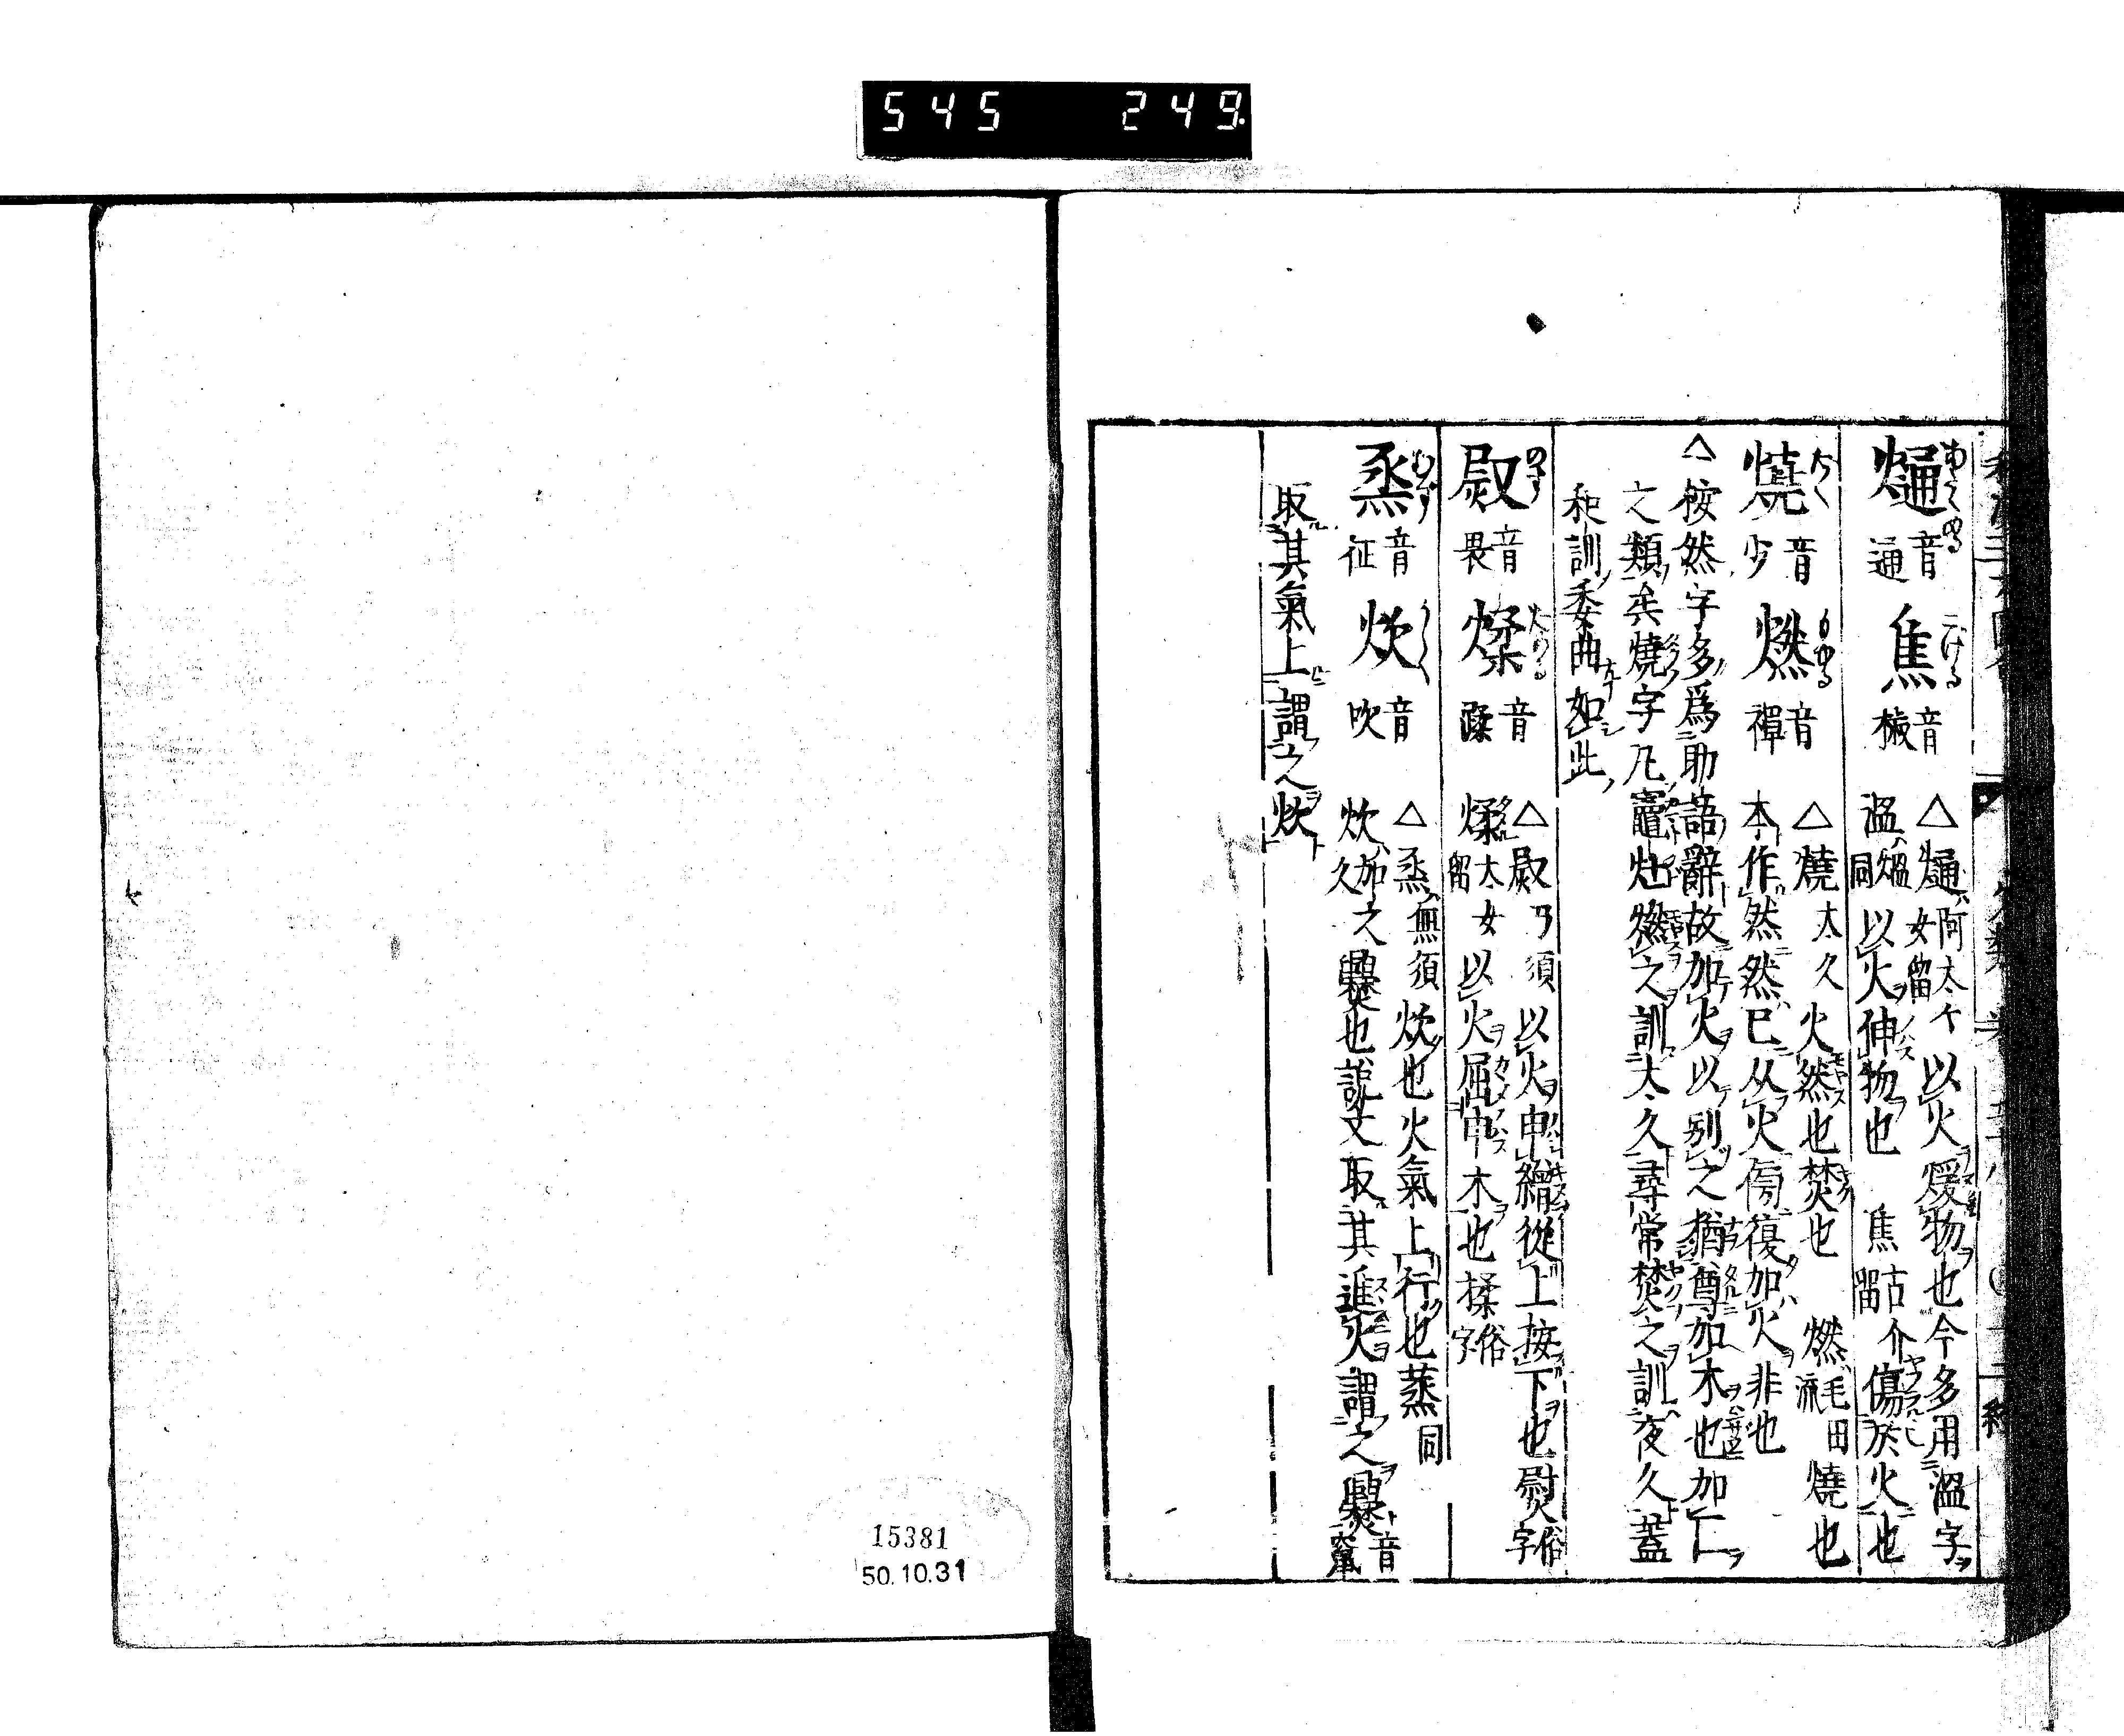 545 249
熥 音通 焦 音樵 △熥阿太々女留以火煖物也今多用溫字
溫熅同以火伸物也 焦古介留傷於火也
燒 音少 燃 音禪 △燒太久火然也焚也 燃毛田流燒也
本作然然已从火傍復加火非也
△按然字多爲助語辭故加火以别之猶尊加木也加仁
之類矣燒字凡竈灶燃之訓太久尋常焚之訓夜久蓋
和訓委曲如此
㷉 音畏 煣 音蹂 △㷉乃須以火申繒從上按下也熨俗字
煣太女留以火屈申木也揉俗字
烝 音征 炊 音吹 △烝無須炊也火氣上行也蒸同
炊加之久爨也說文取其進火謂之爨音竄
取其氣上謂之炊
15381
50.10.31